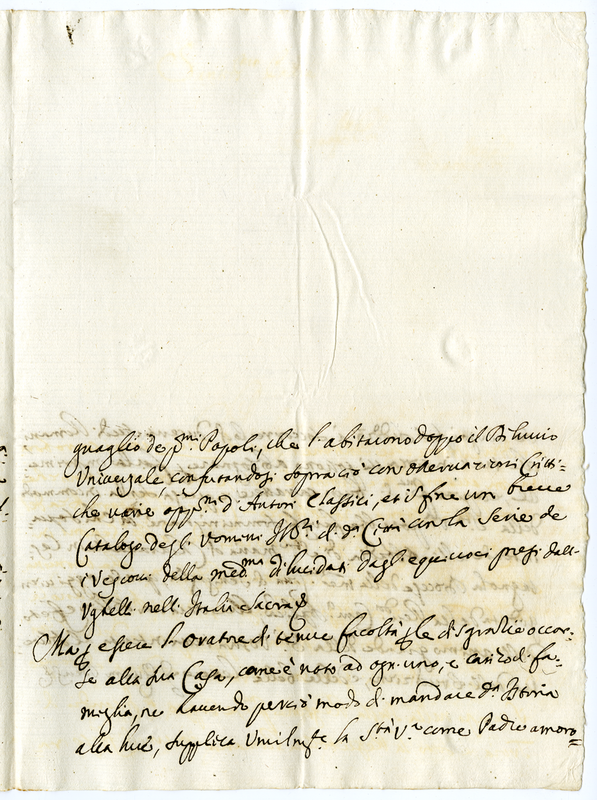 guaglio de p.mi Popoli, che l'abitarono doppo il Diluvio
Universale, confutandosi sopra ciò con osservazioni Criti-
che varie opp.ni d'Autori Classici, et in fine un breve
Catalogo degli Uomini Ill.ri di d.a Città con la Serie de
i Vescovi della med.ma dilucidati dagli equivoci presi dall'
Ughelli nell'Italia Sacra
Ma p essere l'Oratore di tenue facoltà p le disgrazie occor-
se alla sua Casa, come è noto ad ogn'uno, e carico di fa-
miglia, ne havendo perciò modo di mandare d.a Istoria
alla luce, supplica Umilm.te la S.tà V.a come Padre amoro=